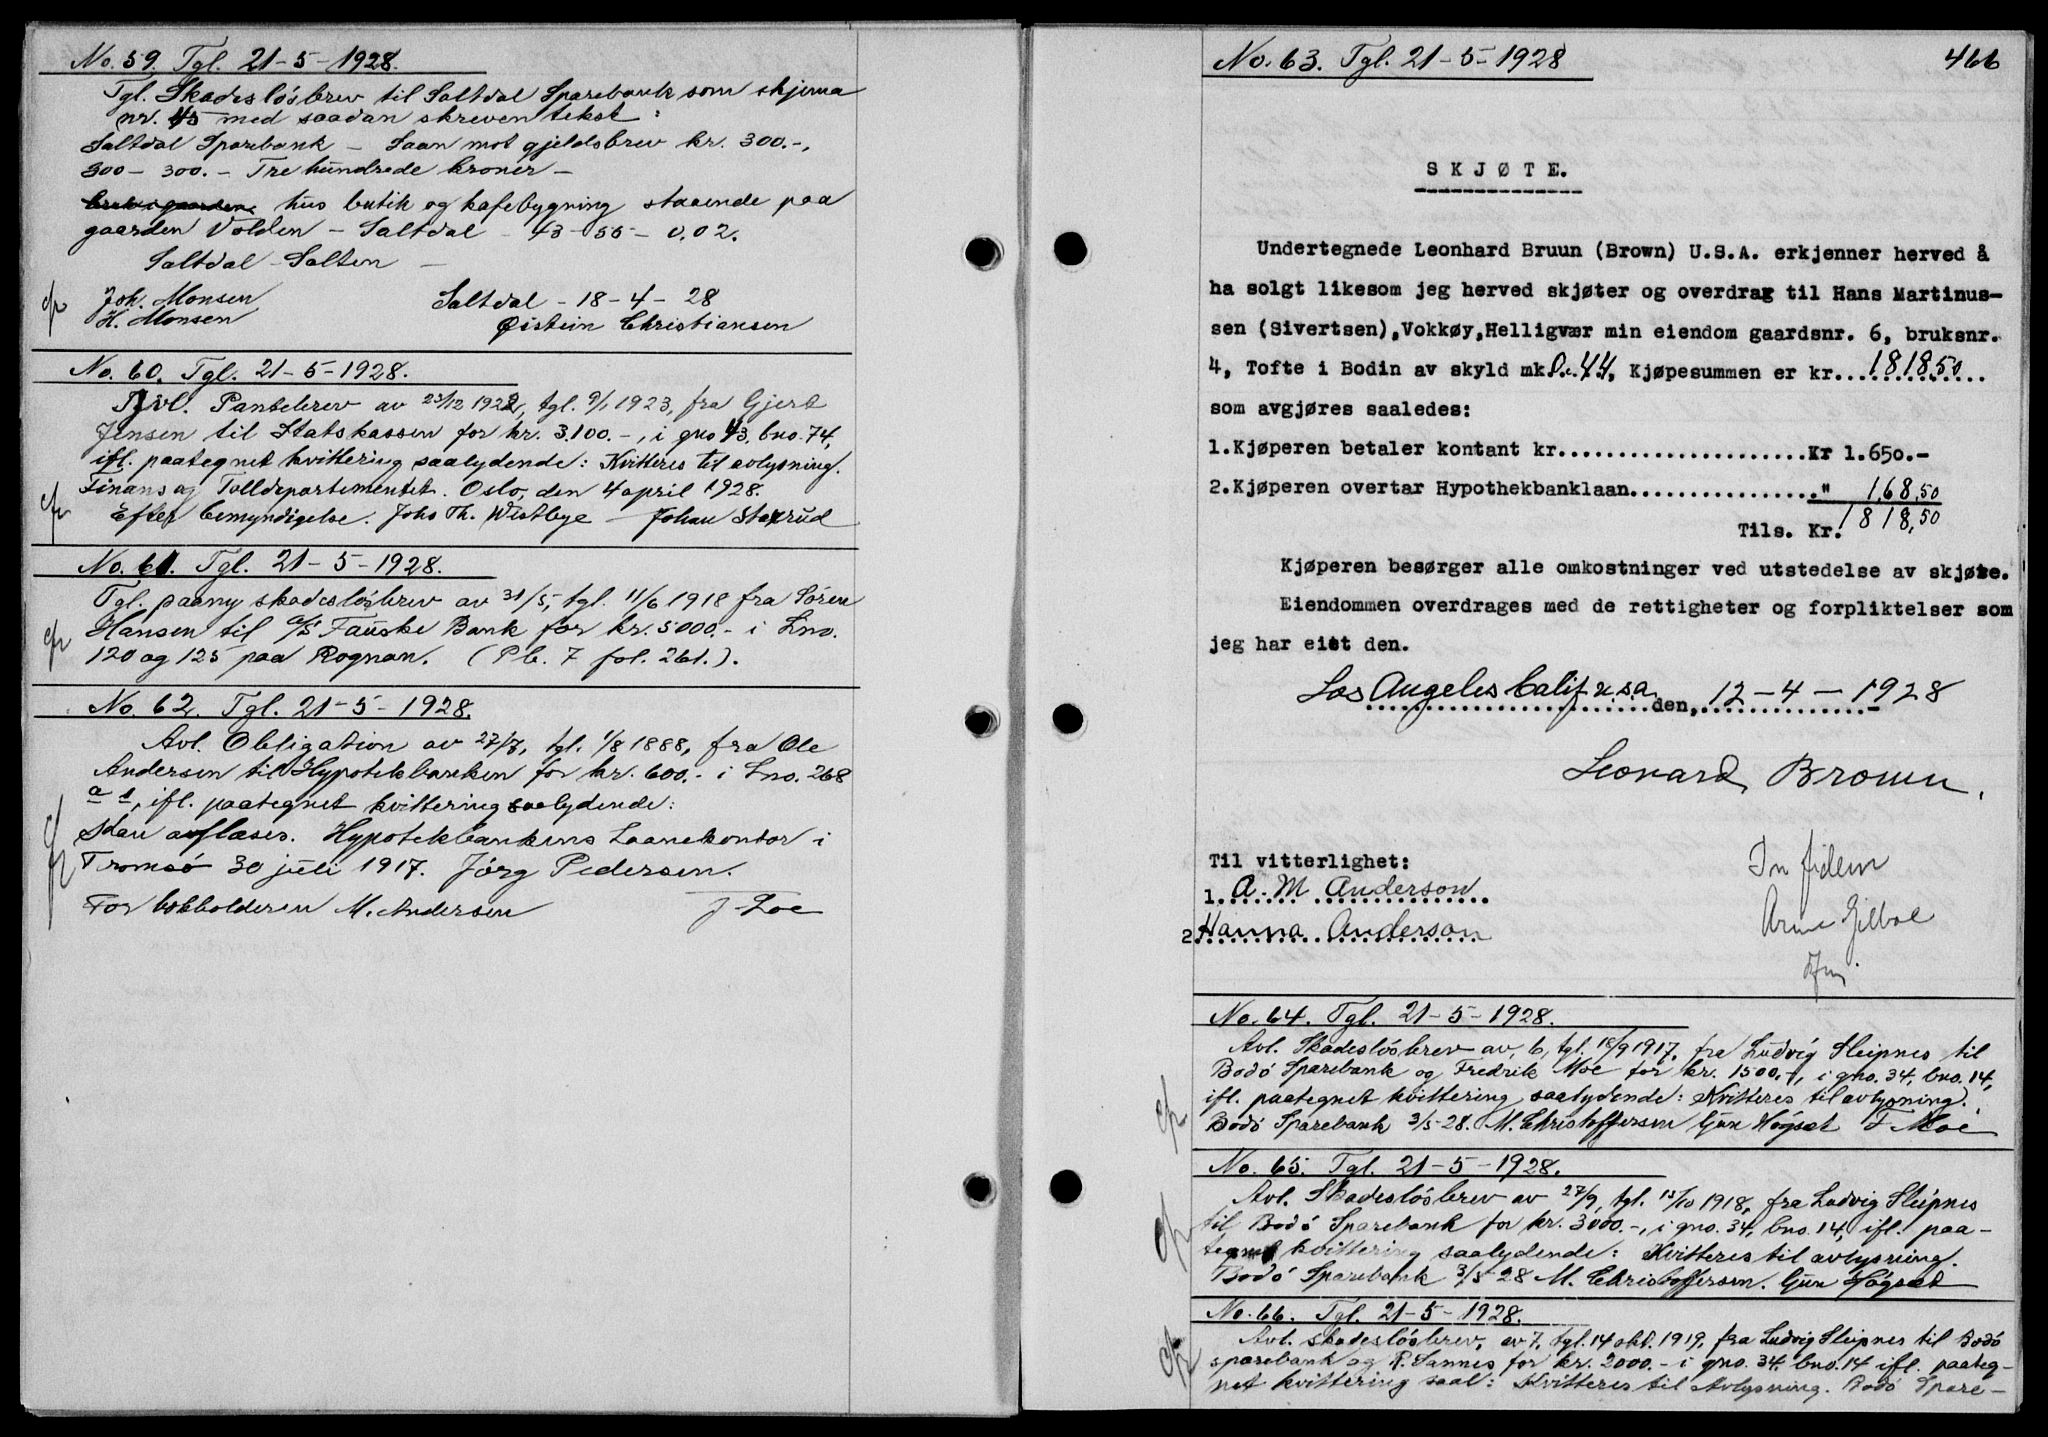 No. 59. Tgl. 21-5-1928.
Tgl. Skadesløsbrev til Saltdal Sparebank som skjema
nr. 45 med saadan skreven tekst:
Saltdal Sparebank - Laan mot gjeldsbrev kr. 300.-,
300 - 300. - Tre hundrede kroner -
hus butik og kafebygning staaende paa
gaarden Volden - Saltdal - 43-55 - 0,02.
Saltdal - Salten -
Joh. Monsen Saltdal - 18-4-28
H. Monsen Øistein Christiansen
No. 60. Tgl. 21-5-1928.
Avl. Pantebrev av 23/12 1922, tgl. 9/1 1923, fra Gjert
Jensen til Statskassen for kr. 3.100.-, i gno 43, bno. 74,
ifl. paategnet kvittering saalydende: Kvitteres til avlysning.
Finans og Tolldepartementet. Oslo, den 4 april 1928.
Efter bemyndigelse. Johs Th. Westbye - Johan Staxrud
No. 61. Tgl. 21-5-1928.
Tgl. paany skadesløsbrev av 31/5, tgl. 11/6 1918 fra Sören
Hansen til A/S Fauske Bank for kr. 5000.- i Lno.
120 og 125 paa Rognan. (Pb. 7 fol. 261.).
No. 62. Tgl. 21-5-1928.
Avl. Obligation av 27/7, tgl. 1/8 1888, fra Ole
Andersen til Hypotekbanken for kr. 600.- i Lno. 268
a 1, ifl. paategnet kvittering saalydende:
Kan aflæses. Hypotekbankens Laanekontor i
Tromsö 30 juli 1917. Jörg Pedersen.
For bokholderen M. Andersen J. Loe
No. 63. Tgl. 21-5-1928 466
SKJØTE.
Undertegnede Leonhard Bruun (Brown) U.S.A. erkjenner herved å
ha solgt likesom jeg herved skjøter og overdrar til Hans Martinus-
sen (Sivertsen), Vokkøy, Helligvær min eiendom gaardsnr. 6, bruksnr.
4, Tofte i Bodin av skyld mk 0.44, Kjøpesummen er kr. 1818.50
som avgjøres saaledes:
1. Kjøperen betaler kontant kr......................Kr 1.650.-
2. Kjøperen overtar Hypothekbanklaan................." 168,50
Tils. Kr. 1818,50
Kjøperen besørger alle omkostninger ved utstedelse av skjøte.
Eiendommen overdrages med de rettigheter og forpliktelser som
jeg har eiet den.
Los Angeles Calif u.s.a. den, 12-4-1928
Leonard Brown.
Til vitterlighet: In fidem
1. A. M Anderson
2. Hanna Anderson
No. 64. Tgl. 21-5-1928.
Avl. Skadesløsbrev av, 6, tgl. 18/9 1917, fra Ludvig Sleipnes til
Bodö Sparebank og Fredrik Moe for kr. 1500.-, i gno. 34, bno. 14,
ifl. paategnet kvittering saalydende: Kvitteres til avlysning.
Bodö Sparebank 3/5-28. M. Christoffersen Gun Högset F Moe
No. 65. Tgl. 21-5-1928.
Avl. Skadesløsbrev av 27/9, tgl. 15/10 1918, fra Ludvig Sleipnes
til Bodö Sparebank for kr. 3000.-, i gno. 34, bno. 14, ifl. paa-
tegnet kvittering saalydende: Kvitteres til avlysning.
Bodö Sparebank 3/5-28 M. Christoffersen. Gun Högset
No. 66. Tgl. 21-5-1928.
Avl. skadesløsbrev, av 7, tgl. 14 okt. 1919, fra Ludvig Sleipnes til Bodö
sparebank og P. Sannes for kr. 2000.- i gno. 34, bno. 14 ifl. paateg-
net kvittering saal: Kvitteres til Avlysning. Bodö Spare-